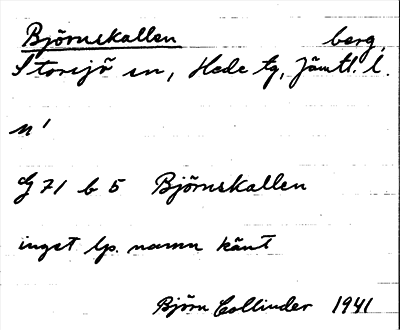 Björnskallen berg,
Storsjö sn, Hede tg, Jämtl. l.
n'
G 71 b 5 Björnskallen
inget lp. namn känt
Björn Collinder 1941